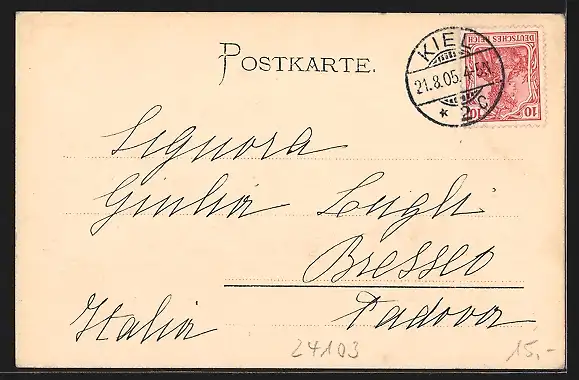 POSTKARTE.
KIEL
21.8.05. 4-5N.
* 2 C
DEUTSCHES REICH
10
Signora
Giulia Lugli
Bresseo
Italia Padova
24103 15,-